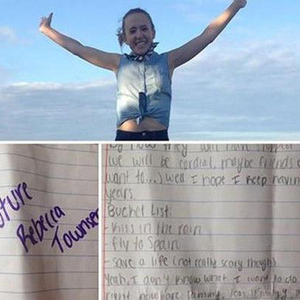 Future
Rebecca
Townsend
by now they will have
(we will be cordial, maybe friends
want to...) Well I hope I keep having
years.
Bucket List:
- Kiss in the rain
- Fly to Spain
- Save a life (not really scary though)
Yeah, I don't know what I want to do
right